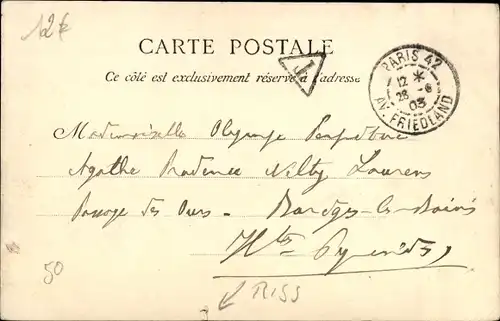 12€
CARTE POSTALE
Ce côté est exclusivement réservé à l'adresse
T
PARIS 42
12 *
28 -6
03
AV. FRIEDLAND
Mademoiselle Olympe
Agathe Prudence Laurens
Passage des Ours - Barèges-les-Bains
Htes Pyrénées
50
RISS